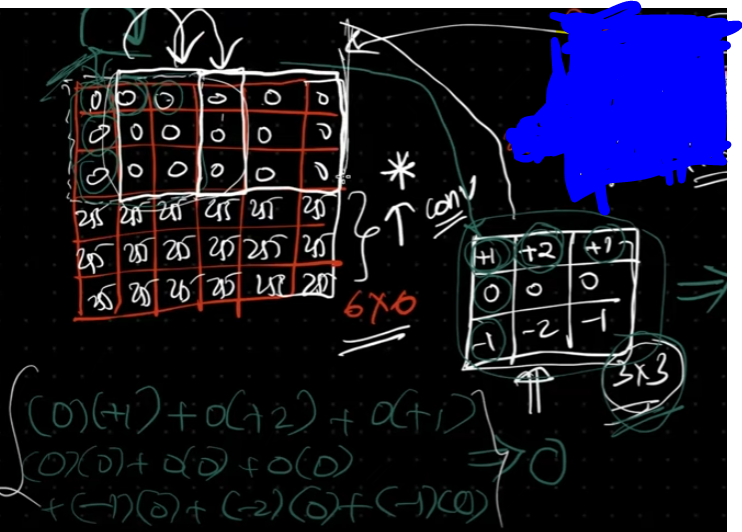 0 0 0 0 0 0
0 0 0 0 0 0
0 0 0 0 0 0
255 255 255 255 255 255
255 255 255 255 255 255
255 255 255 255 255 255
*
conv
6x6
+1 +2 +1
0 0 0
-1 -2 -1
3x3
(0)(+1) + 0(+2) + 0(+1)
(0)(0) + 0(0) + 0(0)
+ (-1)(0) + (-2)(0) + (-1)(0)
=> 0